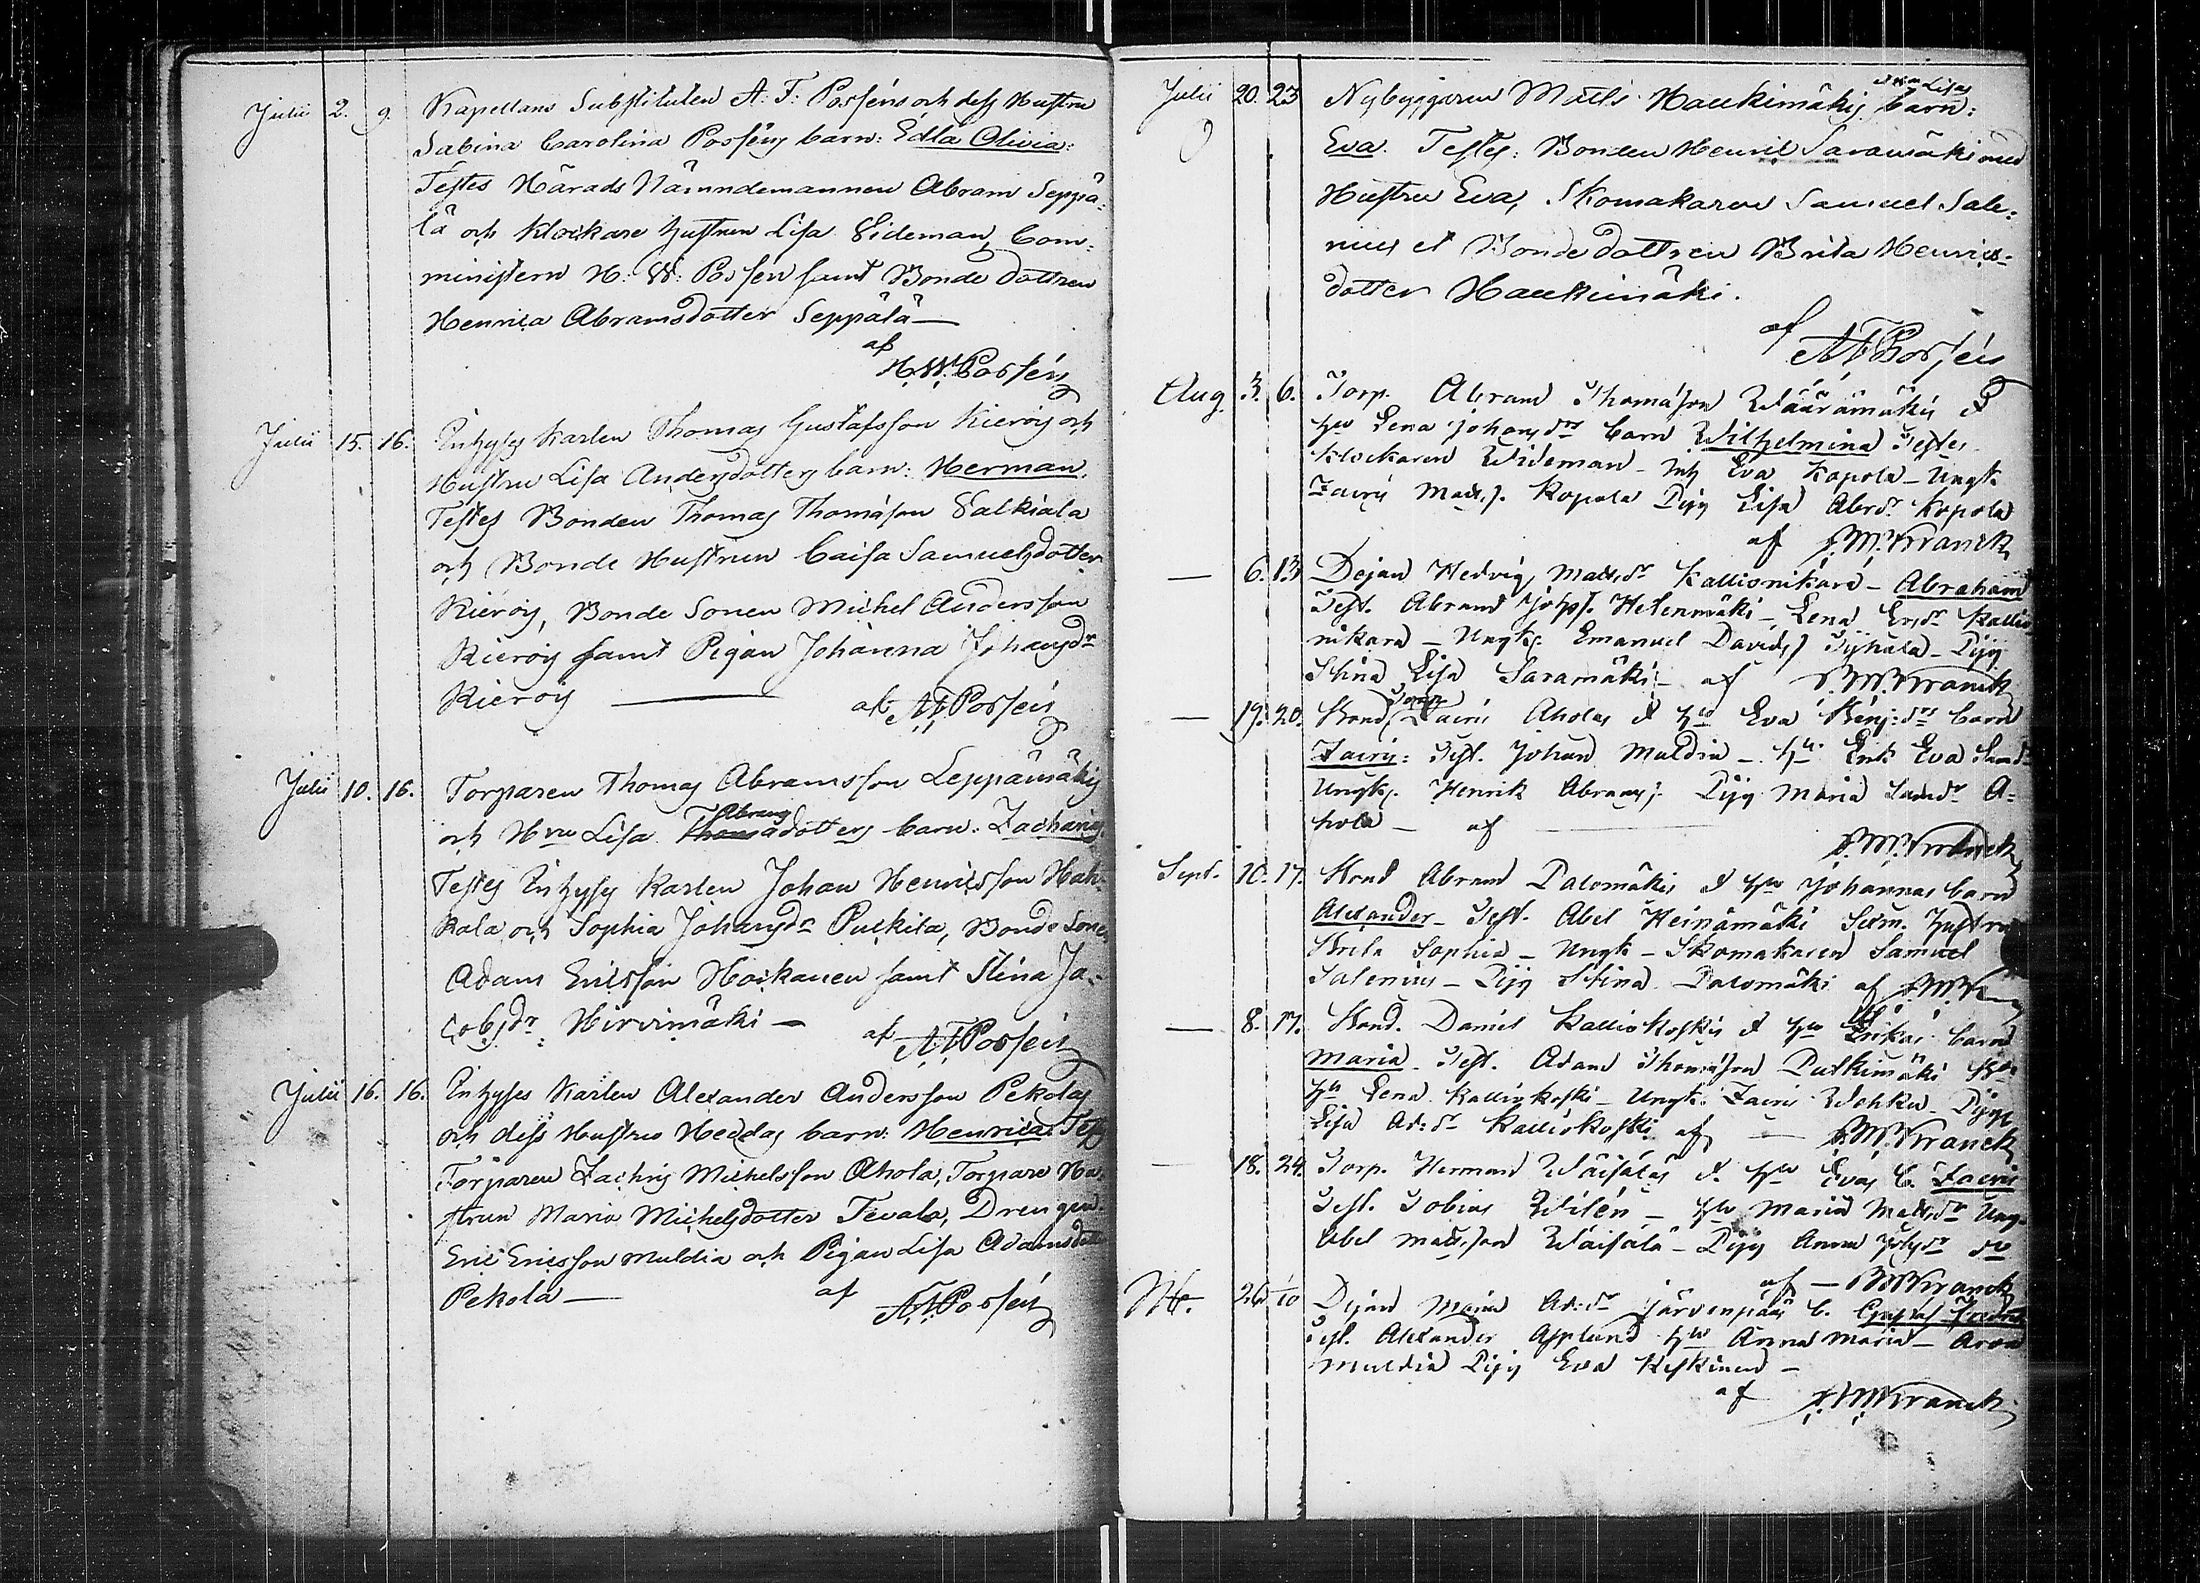 Julii 2. 9. Kapellans Substituten A: F: Possens och dess Hustru
Sabina Carolina Possens barn: Edla Olivia:
Testes Härads Nämndemannen Abram Seppä:
lä och Klockare hustrun Lisa Wideman, Com:
ministern H: W: Possen samt Bonde dottren
Henrica Abramsdotter Seppälä —
af
H. W. Possén
Julii 15. 16. Inhyses Karlen Thomas Gustafsson Kierois och
Hustru Lisa Andersdotters barn: Herman.
Testes Bonden Thomas Thomasson Walkiala
och Bonde Hustrun Caisa Samuelsdotter
Kierois, Bonde Sonen Michel Andersson
Kierois samt Pigan Johanna Johansdr
Kierois — af A F Possén
Julii 10. 16. Torparen Thomas Abramsson Leppämäkis
Abrams
och Hru Lisa dotters barn: Zacharias.
Testes Inhyses Karlen Johan Henricsson Hah-
kala och Sophia Johansdr Puikila, Bonde Sonen
Adam Ericsson Hoikanen samt Stina Ja-
cobsdr Hirvimäki — af A F Possén
Julii 16. 16. Inhyses Karlen Alexander Andersson Pekolas
och diss Hustru Heddas barn: Henrica. Test
Torparen Zachris Michelsson Ahola, Torpare Hu-
strun Maria Michelsdotter Tevala, Drengen
Eric Ericsson Muldia och Pigan Lisa Adamsdott
Pekola — af A F Possén
Lisas
Julii 20. 23 Nybyggaren Matts Haukimäkis barn:
Eva. Testes: Bonden Henric Saramäki med
Hustru Eva, Skomakaren Samuel Sale:
nius et Bonde dottren Brita Henrics-
dotter Haukimäki.
af
A F Possén
Aug. 3. 6. Torp. Abram Thomasson Wäärämäkis &
hu Lena Johansdrs barn Wilhelmina Testes
Klockaren Wideman — Eva Kopola — Ungk.
Zacris Matss. Kopola Pig Lisa Abrdr Kopola
af Franck
— 6. 13 Pejan Hedvig Mattsdr Kallionikara — Abraham
Test. Abram Johss. Hetenmäki — Lena Ersdr Kallio
nikara — Ungk. Emanuel Davids. — Pig
Stina Lisa Saramäki — af Franck
— 19. 20. Bond Zacris Aholas & hu Eva Benj:drs barn
Zacris: Test. Johan Muldia — hu Eva
Ungk. Henrik Abrams. Pig Maria A-
hola — af
Franck
Sept. 10. 17. Bond Abram Palomäkis & hu Johannas barn
Alexander — Test. Abel Heinämäki hustru
Sophia — Ungk — Skomakaren Samuel
Salenius — Pig Stina Palomäki af
— 8. 17. Bond. Daniel Kalliokoskis & hu barn
Maria. Test. Adam Thomasson
hu Lena Kalliokoski — Ungk. Zacris — Pig
Lisa Ad:dr Kalliokoski af — Franck
— 18. 24. Torp. Herman Wäisäläs & hu Evas b. Zacris
Test. Tobias Wilén — hu Maria Mattsdr Ung
Abel Mattsson Wäisälä — Pig Anna Johsdr do
af — Franck
26 1/10 Pejan Maria Ad:dr Järvenpääs b. Gustaf
Test. Alexander Asplund hu Anna Maria — Aron
Muldia Pig Eva Keskinen —
af Franck